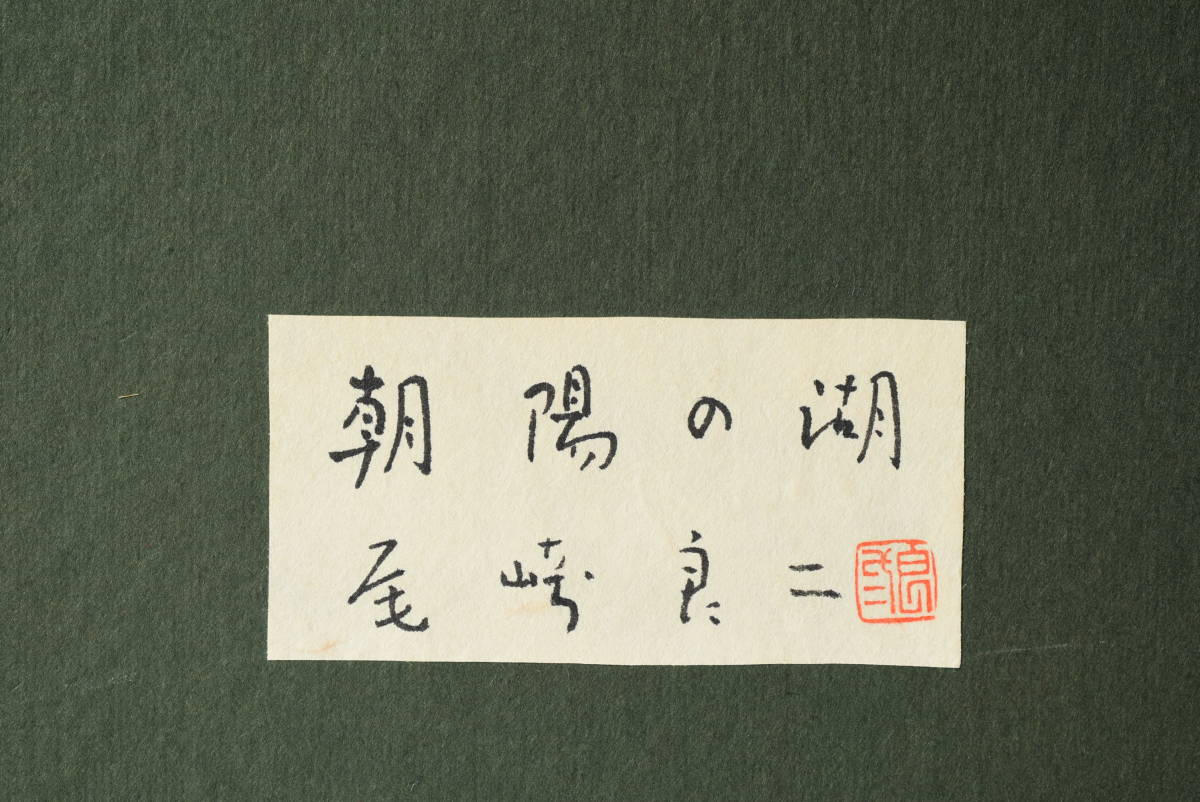 朝陽の湖
尾崎良二